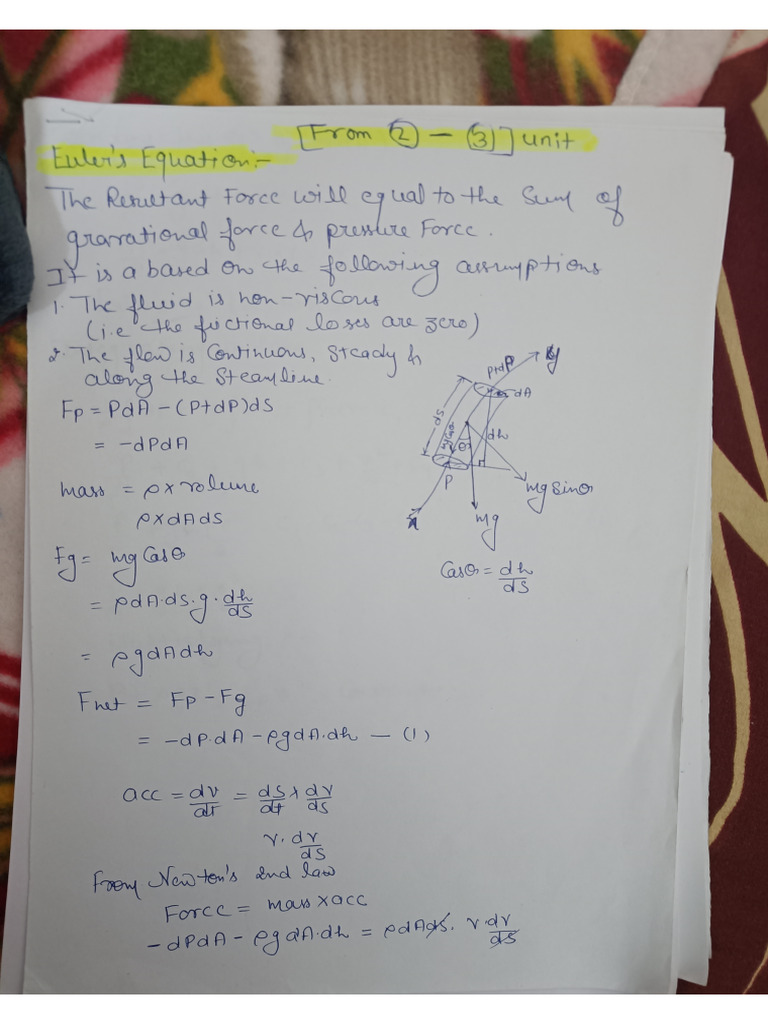 [From ② — ③] unit
Euler's Equation:-
The Resultant Force will equal to the Sum of
gravational force & pressure Force.
It is a based on the following assumptions
1. The fluid is non-viscous
(i.e the frictional loses are zero)
2. The flow is Continuous, Steady &
along the Steamline.
Fp = PdA - (P+dP)dS
= -dPdA
mass = ρ x volume
ρ x dAdS
Fg = mg Cosθ
= ρdA.ds.g.dh/dS
= ρgdAdh
Fnet = Fp - Fg
= -dP.dA - ρgdA.dh — (1)
acc = dv/dt = ds/dt x dv/ds
v.dv/ds
From Newton's 2nd law
Force = mass x acc
-dPdA - ρgdA.dh = ρdAds. v.dv/ds
P+dP
y
dA
dS
mg Cosθ
θ
dh
P
mg Sinθ
mg
Cosθ = dh/dS